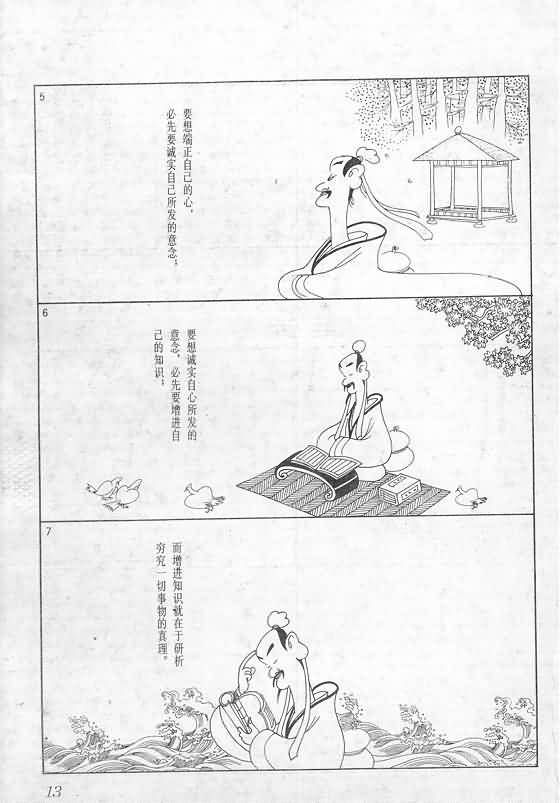 5
要想端正自己的心，
必先要诚实自己所发的意念；
6
要想诚实自心所发的
意念，必先要增进自
己的知识；
7
而增进知识就在于研析
穷究一切事物的真理。
13